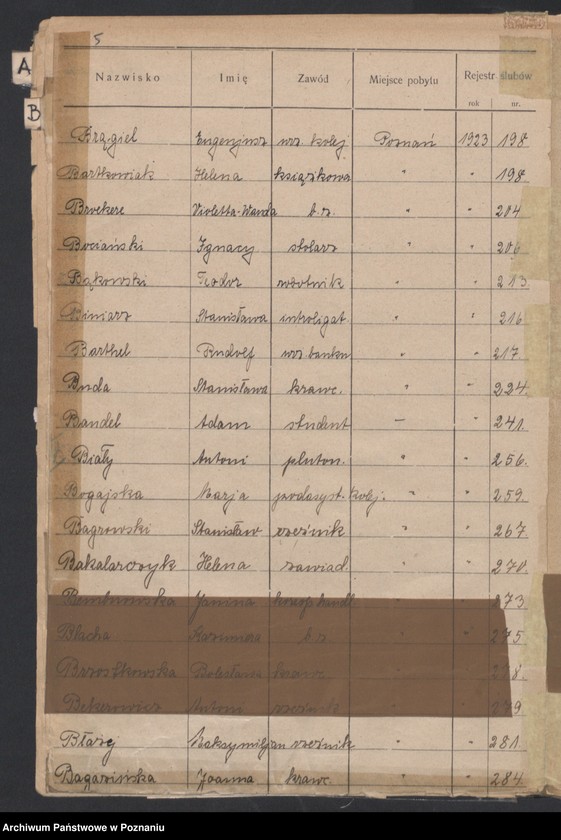 5
A
B
Nazwisko Imię Zawód Miejsce pobytu Rejestr ślubów
rok nr.
Brągiel Eugenjusz urz. kolej. Poznań 1923 198
Bartkowiak Helena książkowa " " 198.
Broekere Violetta-Wanda b. z. " " 204
Bociański Ignacy stolarz " " 206
Bąkowski Teodor robotnik " " 213.
Biniarz Stanisława introligat " " 216
Barthel Rudolf urz. banku " " 217.
Buda Stanisława krawc. " " 224.
Bandel Adam student — " 241.
Biały Antoni pluton. " " 256.
Bogajska Marja podasyst. kolej. " " 259.
Bagrowski Stanisław rzeźnik " " 267
Bakalarczyk Helena zawiad. " " 270.
Janina handl. 273
Blacha Kazimiera b. z. " " 275
Brzostkowska Bolesława krawc. " " 278.
Bekerowicz Antoni rzeźnik " " 279
Błażej Maksymiljan rzeźnik " " 281.
Bagazińska Joanna krawc. " " 284
Archiwum Państwowe w Poznaniu